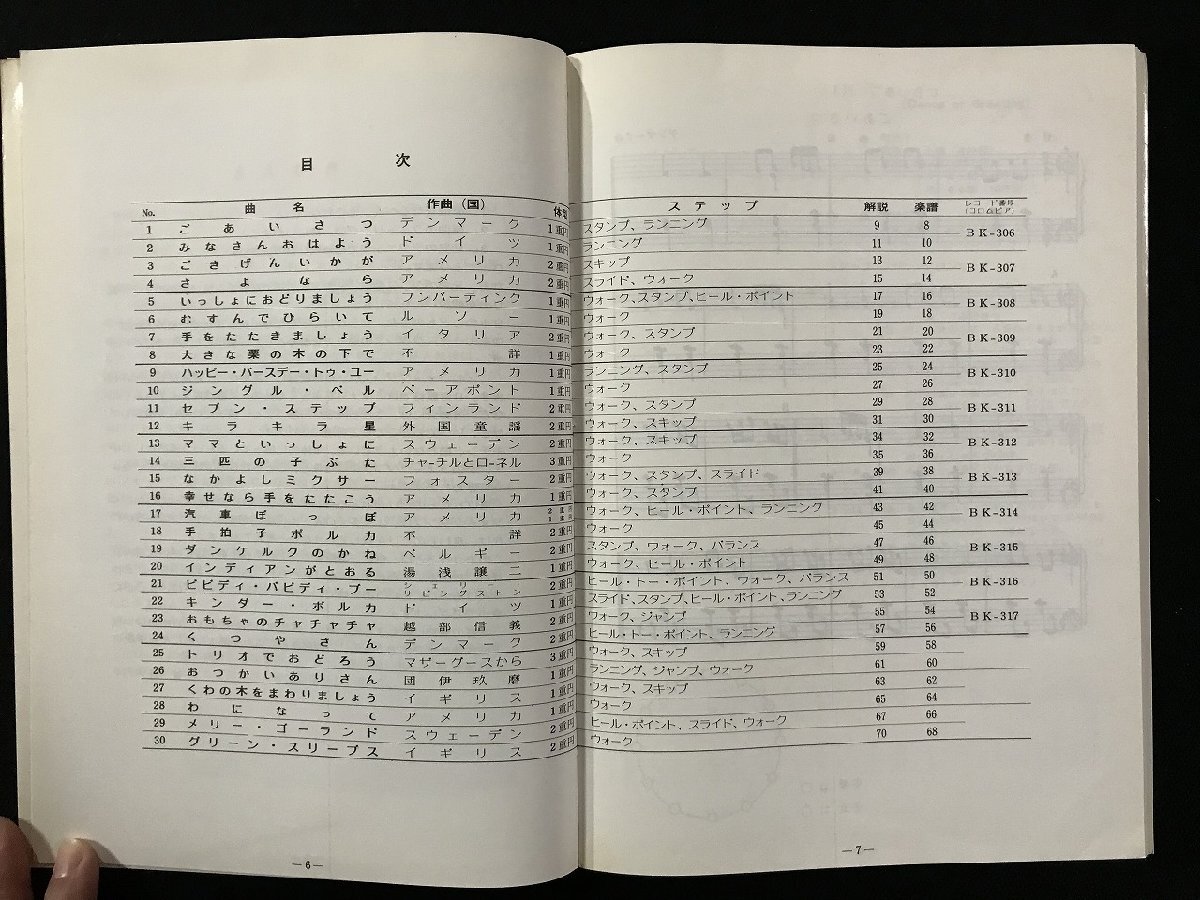 目次
No. 曲名 作曲(国) 体型 ステップ 解説 楽譜 レコード番号(コロムビア)
1 ごあいさつ デンマーク 1重円 スタンプ、ランニング 9 8 BK-306
2 みなさんおはよう ドイツ 1重円 ランニング 11 10
3 ごきげんいかが アメリカ 2重円 スキップ 13 12 BK-307
4 さよなら アメリカ 2重円 スライド、ウォーク 15 14
5 いっしょにおどりましょう フンパーディンク 1重円 ウォーク、スタンプ、ヒール・ポイント 17 16 BK-308
6 むすんでひらいて ルソー 1重円 ウォーク 19 18
7 手をたたきましょう イタリア 2重円 ウォーク、スタンプ 21 20 BK-309
8 大きな栗の木の下で 不詳 1重円 ウォーク 23 22
9 ハッピー・バースデー・トゥ・ユー アメリカ 1重円 ランニング、スタンプ 25 24 BK-310
10 ジングル・ベル ペーアポント 1重円 ウォーク 27 26
11 セブン・ステップ フィンランド 2重円 ウォーク、スタンプ 29 28 BK-311
12 キラキラ星 外国童謡 2重円 ウォーク、スキップ 31 30
13 ママといっしょに スウェーデン 2重円 ウォーク、スキップ 34 32 BK-312
14 三匹の子ぶた チャーチルとローネル 3重円 ウォーク 35 36
15 なかよしミクサー フォスター 2重円 ウォーク、スタンプ、スライド 39 38 BK-313
16 幸せなら手をたたこう アメリカ 1重円 ウォーク、スタンプ 41 40
17 汽車ぽっぽ アメリカ 2重円 1重円 ウォーク、ヒール・ポイント、ランニング 43 42 BK-314
18 手拍子ポルカ 不詳 2重円 ウォーク 45 44
19 ダンケルクのかね ベルギー 2重円 スタンプ、ウォーク、バランス 47 46 BK-315
20 インディアンがとおる 湯浅譲二 1重円 ウォーク、ヒール・ポイント 49 48
21 ビビディ・バビディ・ブー ジェリー リビングストン 2重円 ヒール・トー・ポイント、ウォーク、バランス 51 50 BK-316
22 キンダー・ポルカ ドイツ 1重円 スライド、スタンプ、ヒール・ポイント、ランニング 53 52
23 おもちゃのチャチャチャ 越部信義 2重円 ウォーク、ジャンプ 55 54 BK-317
24 くつやさん デンマーク 2重円 ヒール・トー・ポイント、ランニング 57 56
25 トリオでおどろう マザーグースから 3重円 ウォーク、スキップ 59 58
26 おつかいありさん 団伊玖磨 1重円 ランニング、ジャンプ、ウォーク 61 60
27 くわの木をまわりましょう イギリス 1重円 ウォーク、スキップ 63 62
28 わになって アメリカ 1重円 ウォーク 65 64
29 メリー・ゴーランド スウェーデン 2重円 ヒール・ポイント、スライド、ウォーク 67 66
30 グリーン・スリーブス イギリス 2重円 ウォーク 70 68
—6—
—7—